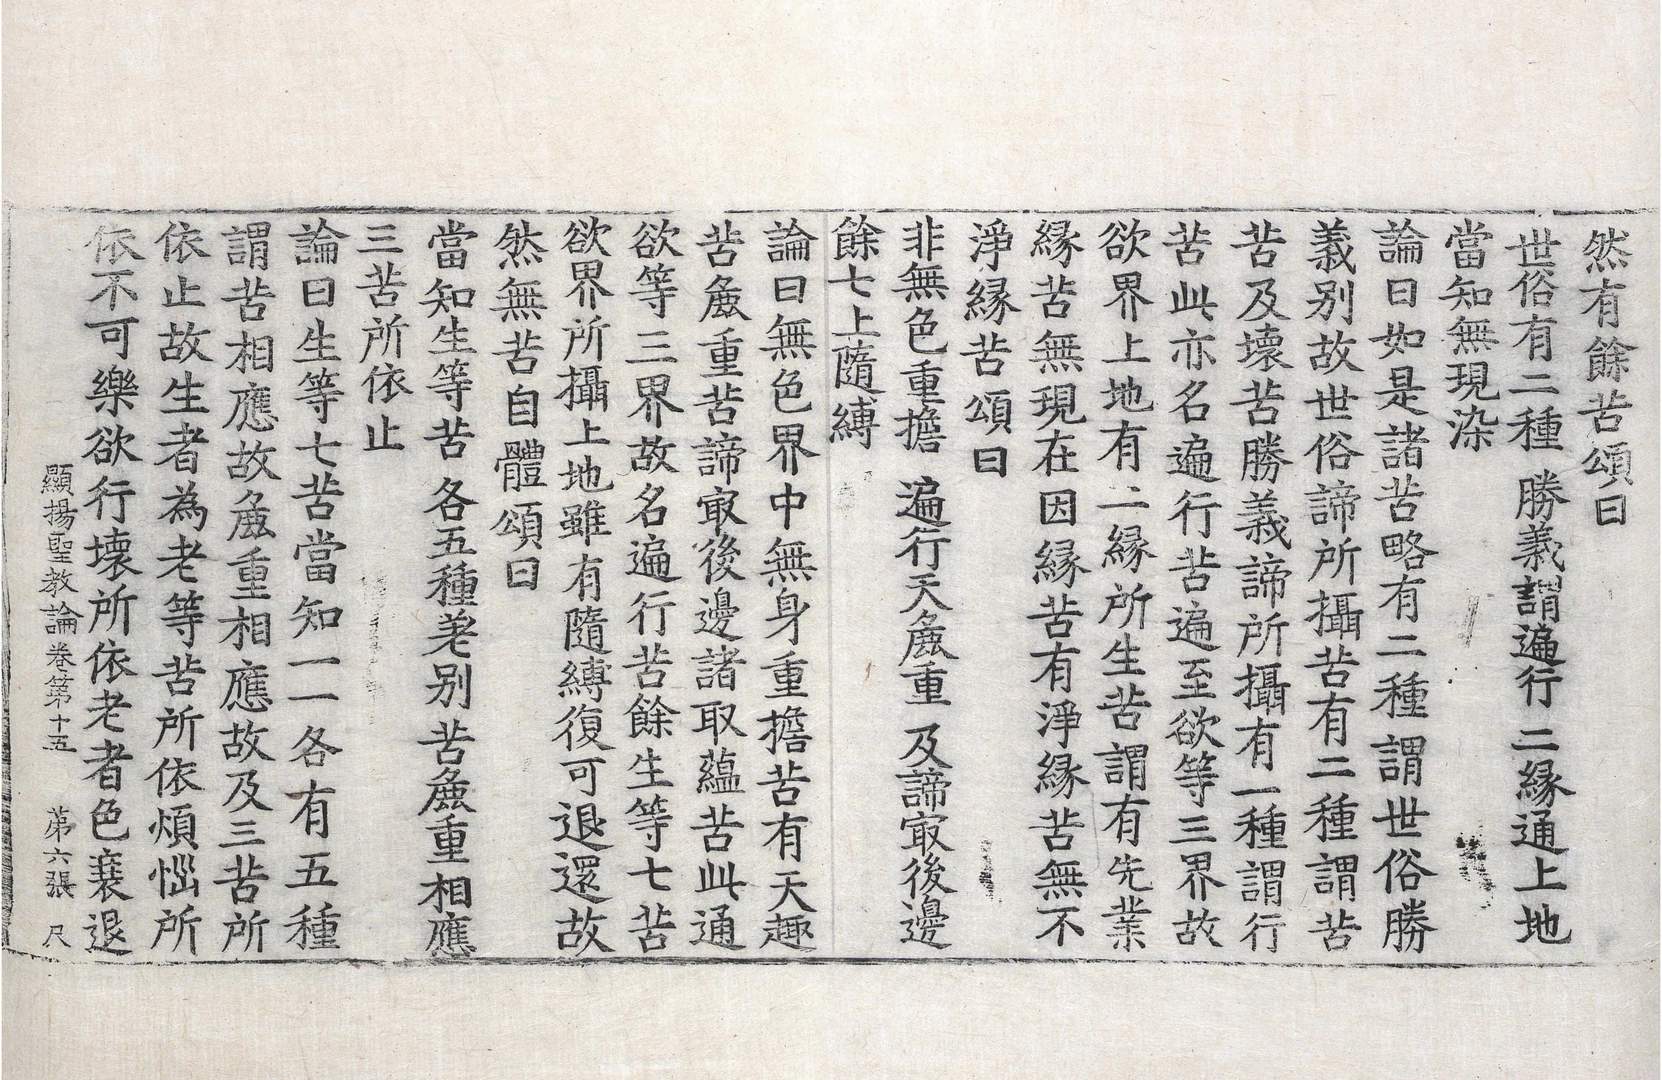 然有餘苦頌曰
世俗有二種 勝義謂遍行 二縁通上地
當知無現染
論曰如是諸苦略有二種謂世俗勝
義別故世俗諦所攝苦有二種謂苦
苦及壞苦勝義諦所攝有一種謂行
苦此亦名遍行苦遍至欲等三界故
欲界上地有二縁所生苦謂有先業
縁苦無現在因縁苦有淨縁苦無不
淨縁苦頌曰
非無色重擔 遍行天麁重 及諦㝡後邊
餘七上隨縛
論曰無色界中無身重擔苦有天趣
苦麁重苦諦㝡後邊諸取蘊苦此通
欲等三界故名遍行苦餘生等七苦
欲界所攝上地雖有隨縛復可退還故
然無苦自體頌曰
當知生等苦 各五種差別 苦麁重相應
三苦所依止
論曰生等七苦當知一一各有五種
謂苦相應故麁重相應故及三苦所
依止故生者為老等苦所依煩惱所
依不可樂欲行壞所依老者色衰退
顯揚聖教論卷第十五 第六張 尺